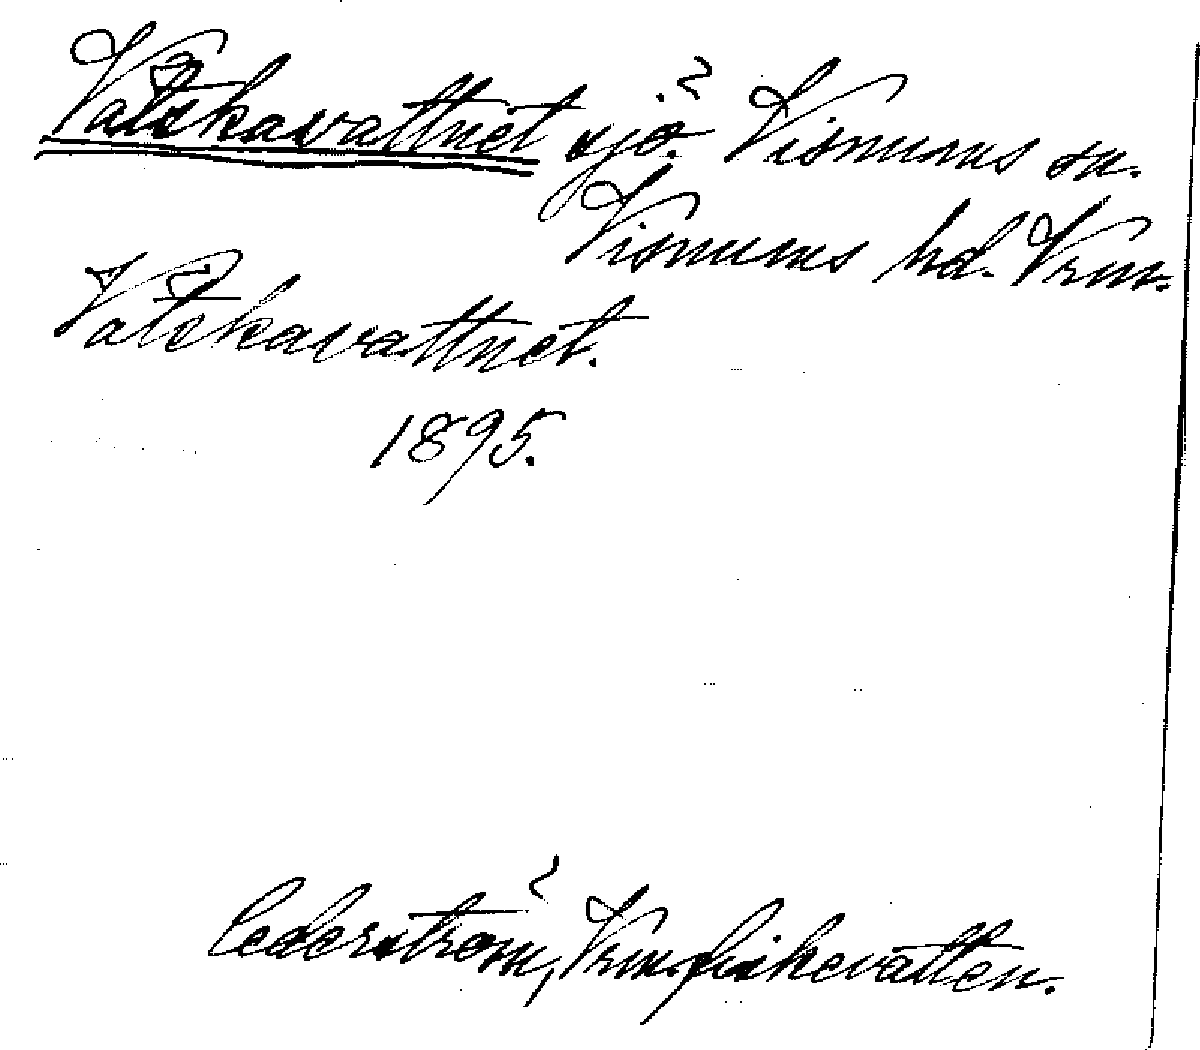 Vätskavattnet sjö. Visnums sn.
Visnums hd. Vrm.
Vätskavattnet.
1895.
Cederström, Vrm. fiskevatten.